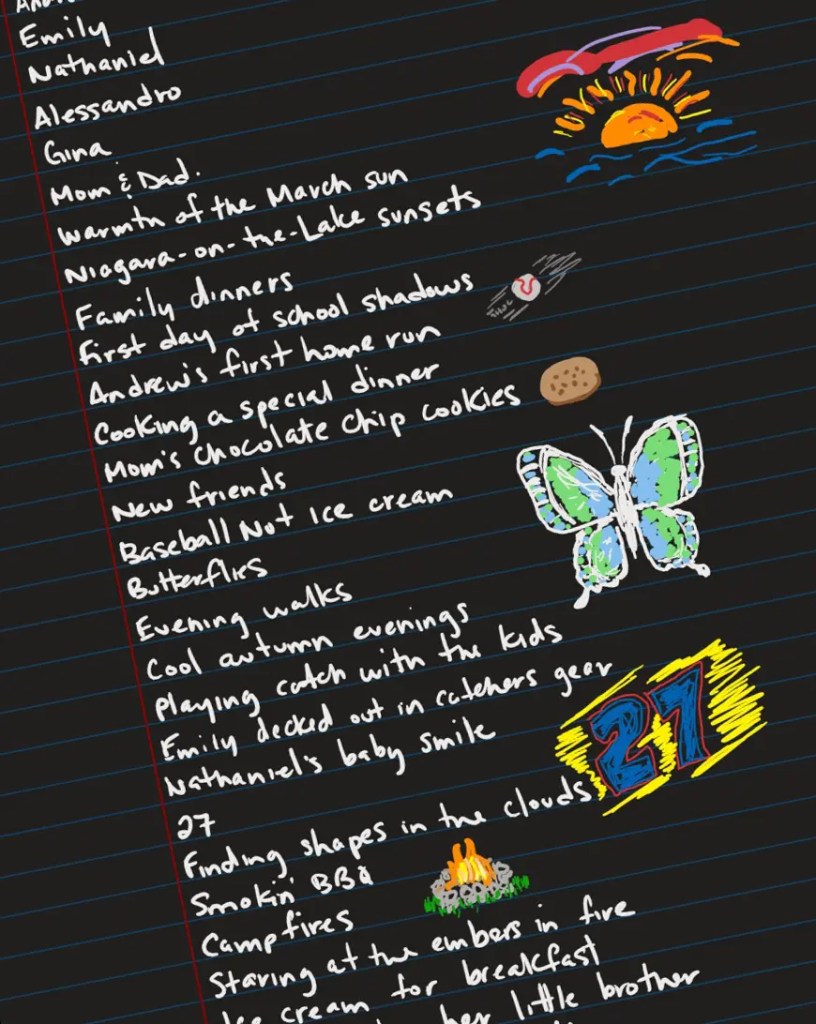 Emily
Nathaniel
Alessandro
Gina
Mom & Dad.
Warmth of the March sun
Niagara-on-the-Lake sunsets
Family dinners
First day of school shadows
Andrew's first home run
Cooking a special dinner
Mom's chocolate chip cookies
New friends
Baseball Not ice cream
Butterflies
Evening walks
Cool autumn evenings
Playing catch with the kids
Emily decked out in catchers gear
Nathaniel's baby smile
27
27
Finding shapes in the clouds
Smokin' BBQ
Campfires
Staring at the embers in fire
Ice cream for breakfast
her little brother